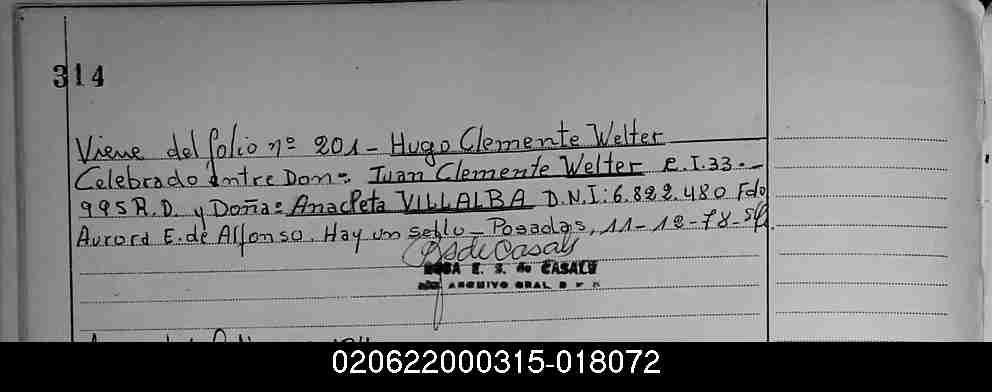 314
Viene del folio nº 201 - Hugo Clemente Welter
Celebrado entre Don: Juan Clemente Welter C.I. 33.-
995 R.D. y Doña: Anacleta VILLALBA D.N.I: 6.822.480 Fdo
Aurora E. de Alfonso. Hay un sello - Posadas, 11-12-78-
E. S. de CASALS
ARCHIVO GRAL
020622000315-018072